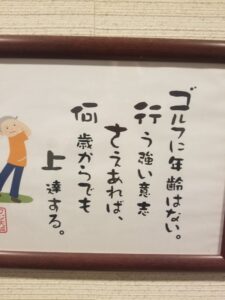 ゴルフに年齢はない。
行う強い意志
さえあれば、
何歳からでも
上達する。